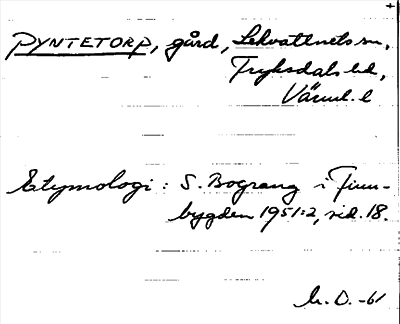 PYNTETORP, gård, Lekvattnets sn,
Fryksdals hd,
Värml. l
Etymologi: S. Bograng i Finn-
bygden 1951:2, sid. 18.
h. D. -61